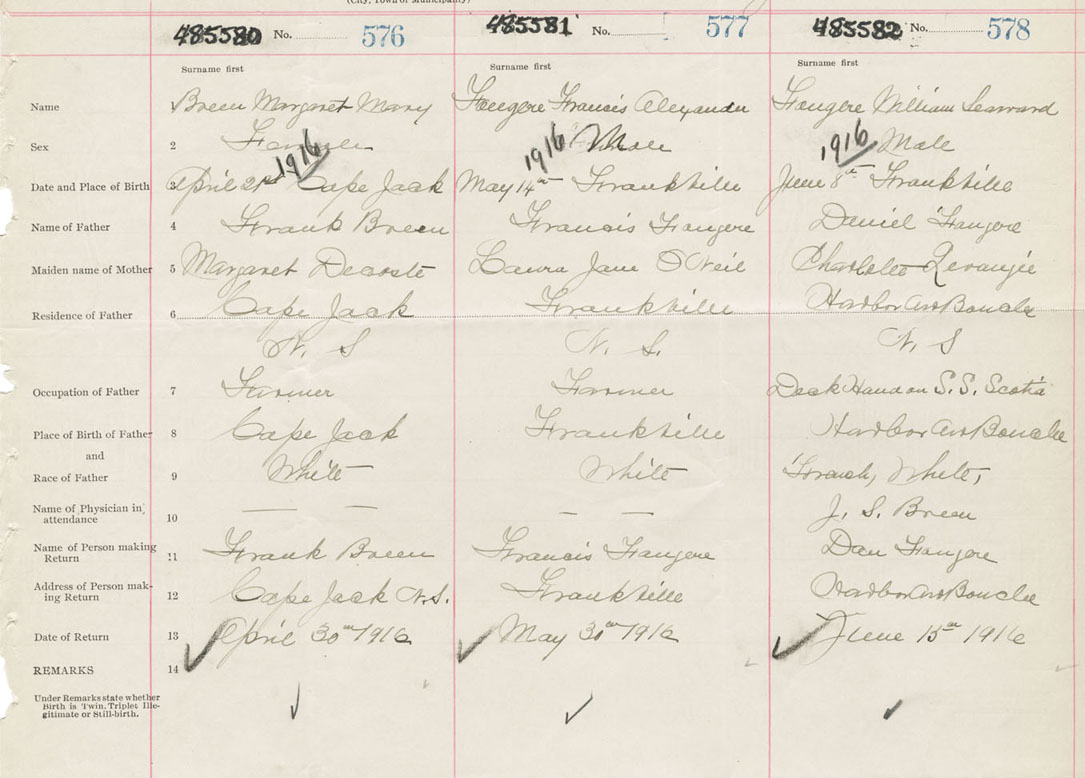 (City, Town or Municipality)
485580 No. 576 485581 No. 577 485582 No. 578
Surname first Surname first Surname first
Name 1 Breen Margaret Mary Faugere Francis Alexander Faugere William Seaward
Sex 2 Female Male Male
1916 1916 1916
Date and Place of Birth 3 April 21st Cape Jack May 14th Frankville June 8th Frankville
Name of Father 4 Frank Breen Francis Faugere Daniel Faugere
Maiden name of Mother 5 Margaret Decoste Laura Jane O'Neil Levangie
Residence of Father 6 Cape Jack Frankville Harbor Au Bouche
N. S N. S. N. S
Occupation of Father 7 Farmer Farmer Deck Hand on S.S. Scotia
Place of Birth of Father 8 Cape Jack Frankville Harbor Au Bouche
and
Race of Father 9 White White French, White,
Name of Physician in
attendance 10 — — — — J. S. Breen
Name of Person making
Return 11 Frank Breen Francis Faugere Dan Faugere
Address of Person mak-
ing Return 12 Cape Jack N.S. Frankville Harbor Au Bouche
Date of Return 13 April 30th 1916 May 30th 1916 June 15th 1916
REMARKS 14
Under Remarks state whether
Birth is Twin, Triplet Ille-
gitimate or Still-birth.